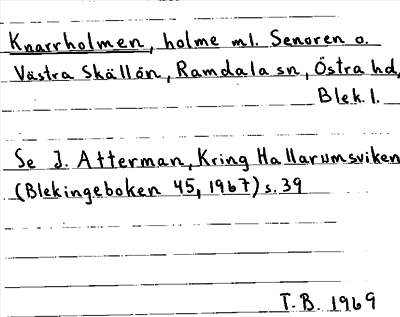 Knarrholmen, holme ml. Senoren o.
Västra Skällön, Ramdala sn, Östra hd,
Blek. l.
Se I. Atterman, Kring Hallarumsviken
(Blekingeboken 45, 1967) s. 39
T.B. 1969